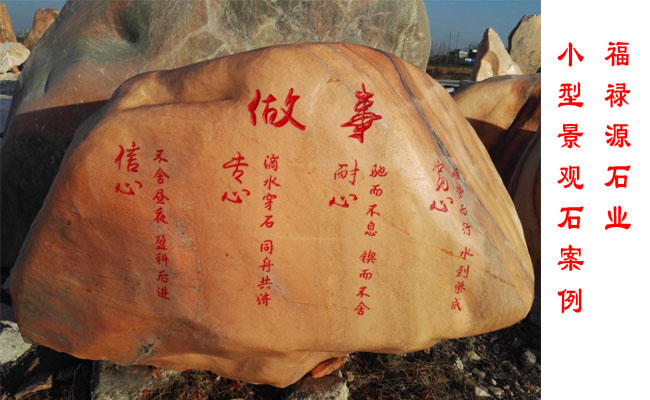 做事
信心
不舍昼夜 盈科后进
专心
滴水穿石 同舟共济
耐心
驰而不息 锲而不舍
心
而行 水到渠成
福禄源石业
小型景观石案例